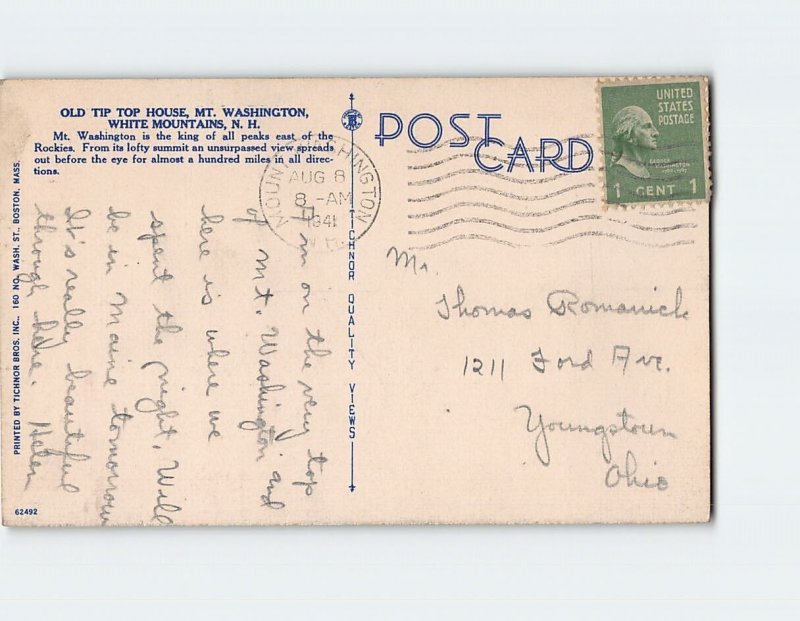 OLD TIP TOP HOUSE, MT. WASHINGTON,
WHITE MOUNTAINS, N. H.
Mt. Washington is the king of all peaks east of the
Rockies. From its lofty summit an unsurpassed view spreads
out before the eye for almost a hundred miles in all direc-
tions.
I'm on the very top
of Mt. Washington and
here is where we
spent the night. Will
be in Maine tomorrow
It's really beautiful
through here. Helen
PRINTED BY TICHNOR BROS. INC., 160 NO. WASH. ST., BOSTON, MASS.
62492
TICHNOR QUALITY VIEWS
POST CARD
MOUNT WASHINGTON
AUG 8
8 - AM
1941
N.H.
UNITED
STATES
POSTAGE
GEORGE
WASHINGTON
1789-1797
1 CENT 1
Mr.
Thomas Romanick
1211 Ford Ave.
Youngstown
Ohio